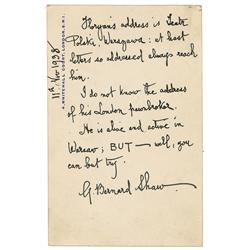 4, WHITEHALL COURT, LONDON, S.W.1.
11th Nov 1938
Floryan's address is Teatr
Polski, Warszawa: at least
letters so addressed always reach
him.
I do not know the address
of his London pawnbroker.
He is alive and active in
Warsaw; BUT — well, you
can but try.
G. Bernard Shaw